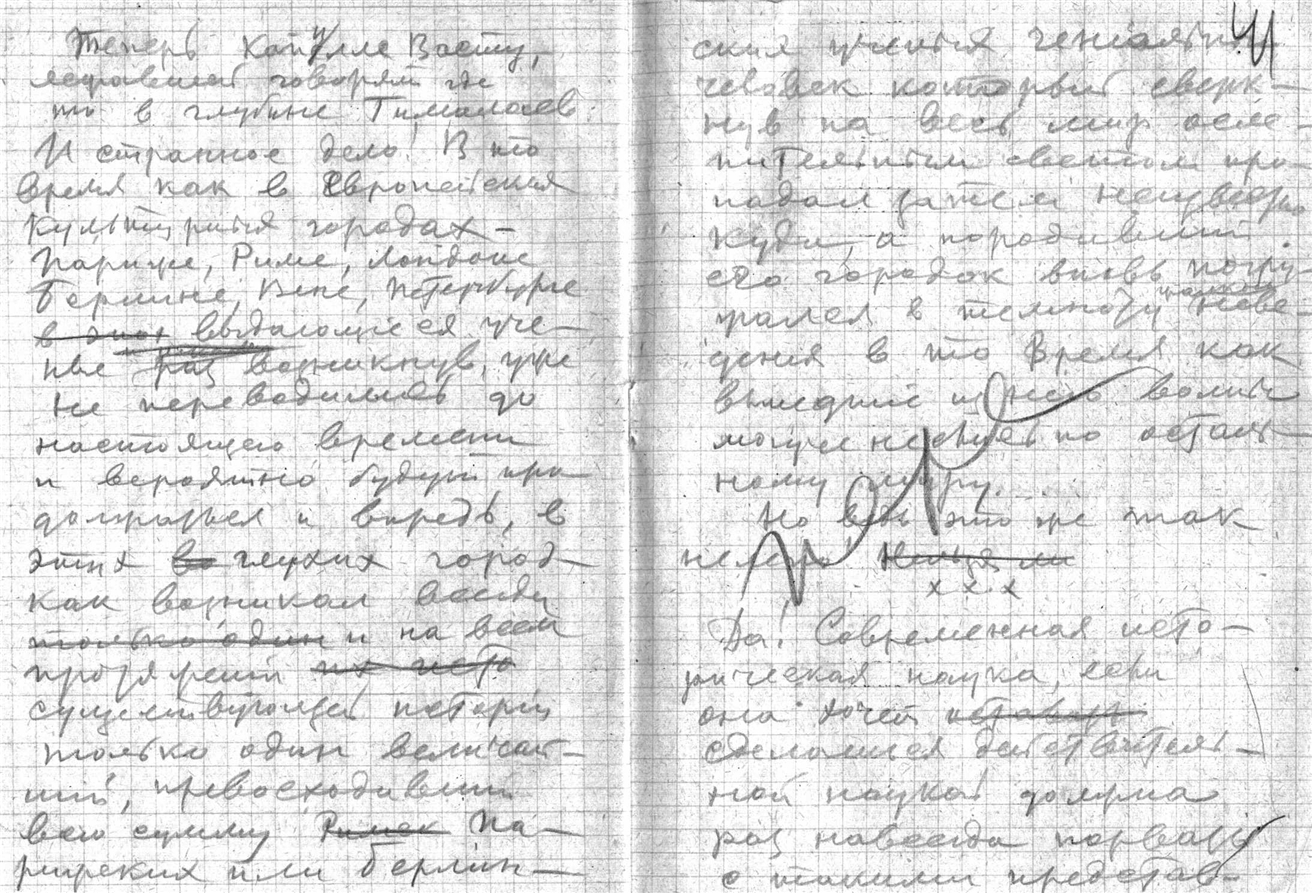 Теперь Капилле Васту,
лежавшей говорят где
то в глубине Гималаев
И странное дело! В то
время как в Европейских
культурных городах —
Париже, Риме, Лондоне
Берлине, Вене, Петербурге
в этих выдающиеся уче-
ные раз возникнув, уже
не переводились до
настоящего времени
и вероятно будут про
должаться и впредь, в
этих во глухих город-
ках возникал всегда
только один и на всем
протяжении их исто
существующей истории
только один величай-
ший, превосходивший
всю сумму Римск Па-
рижских или Берлин-
ских ученых гениальный
человек который сверк-
нув на весь мир осле-
пительным светом про-
падал затем неизвестно
куда, а породивший
его городок вновь погру
жался в темноту неве-
дения в то время как
вышедшие из него волны
могучие неслись по осталь-
ному миру.
Но ведь это же так
нелепо! Нельзя ли
х х х
Да! Современная исто-
рическая наука, если
она хочет оставать
сделаться действитель-
ной наукой должна
раз навсегда порвать
с такими представ-